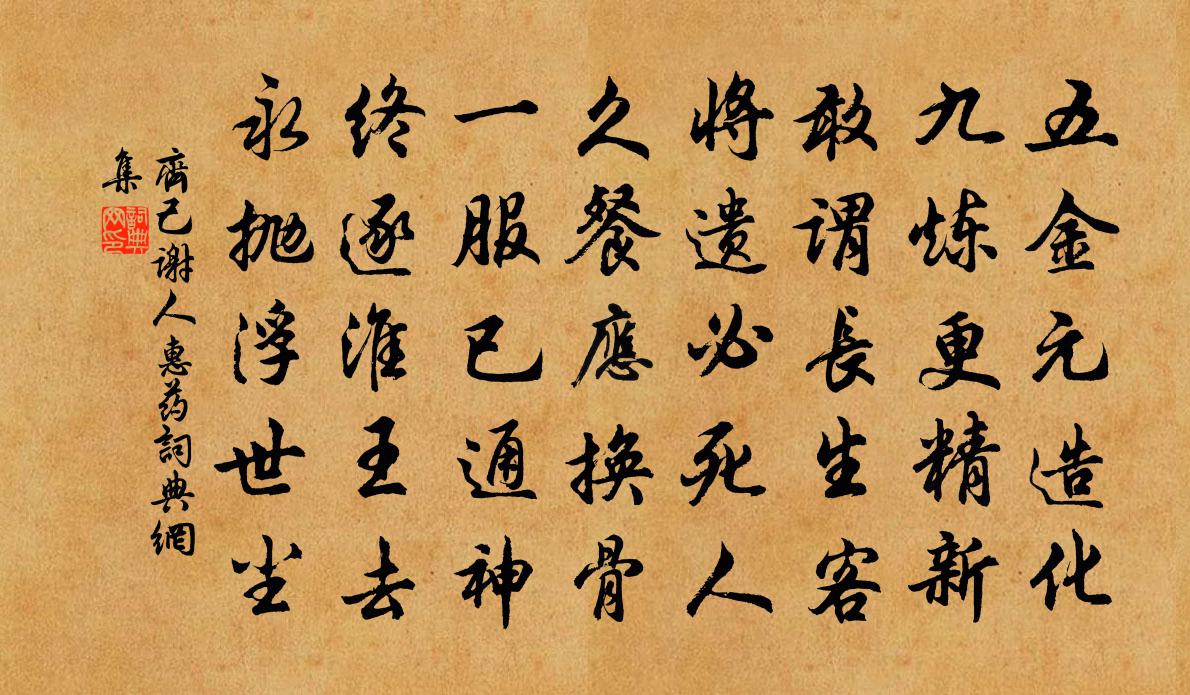 五金元造化
九炼更精新
敢谓長生客
将遗必死人
久餐應换骨
一服已通神
终逐淮王去
永抛浮世尘
齊己谢人惠药詞典網
集
詞典網印